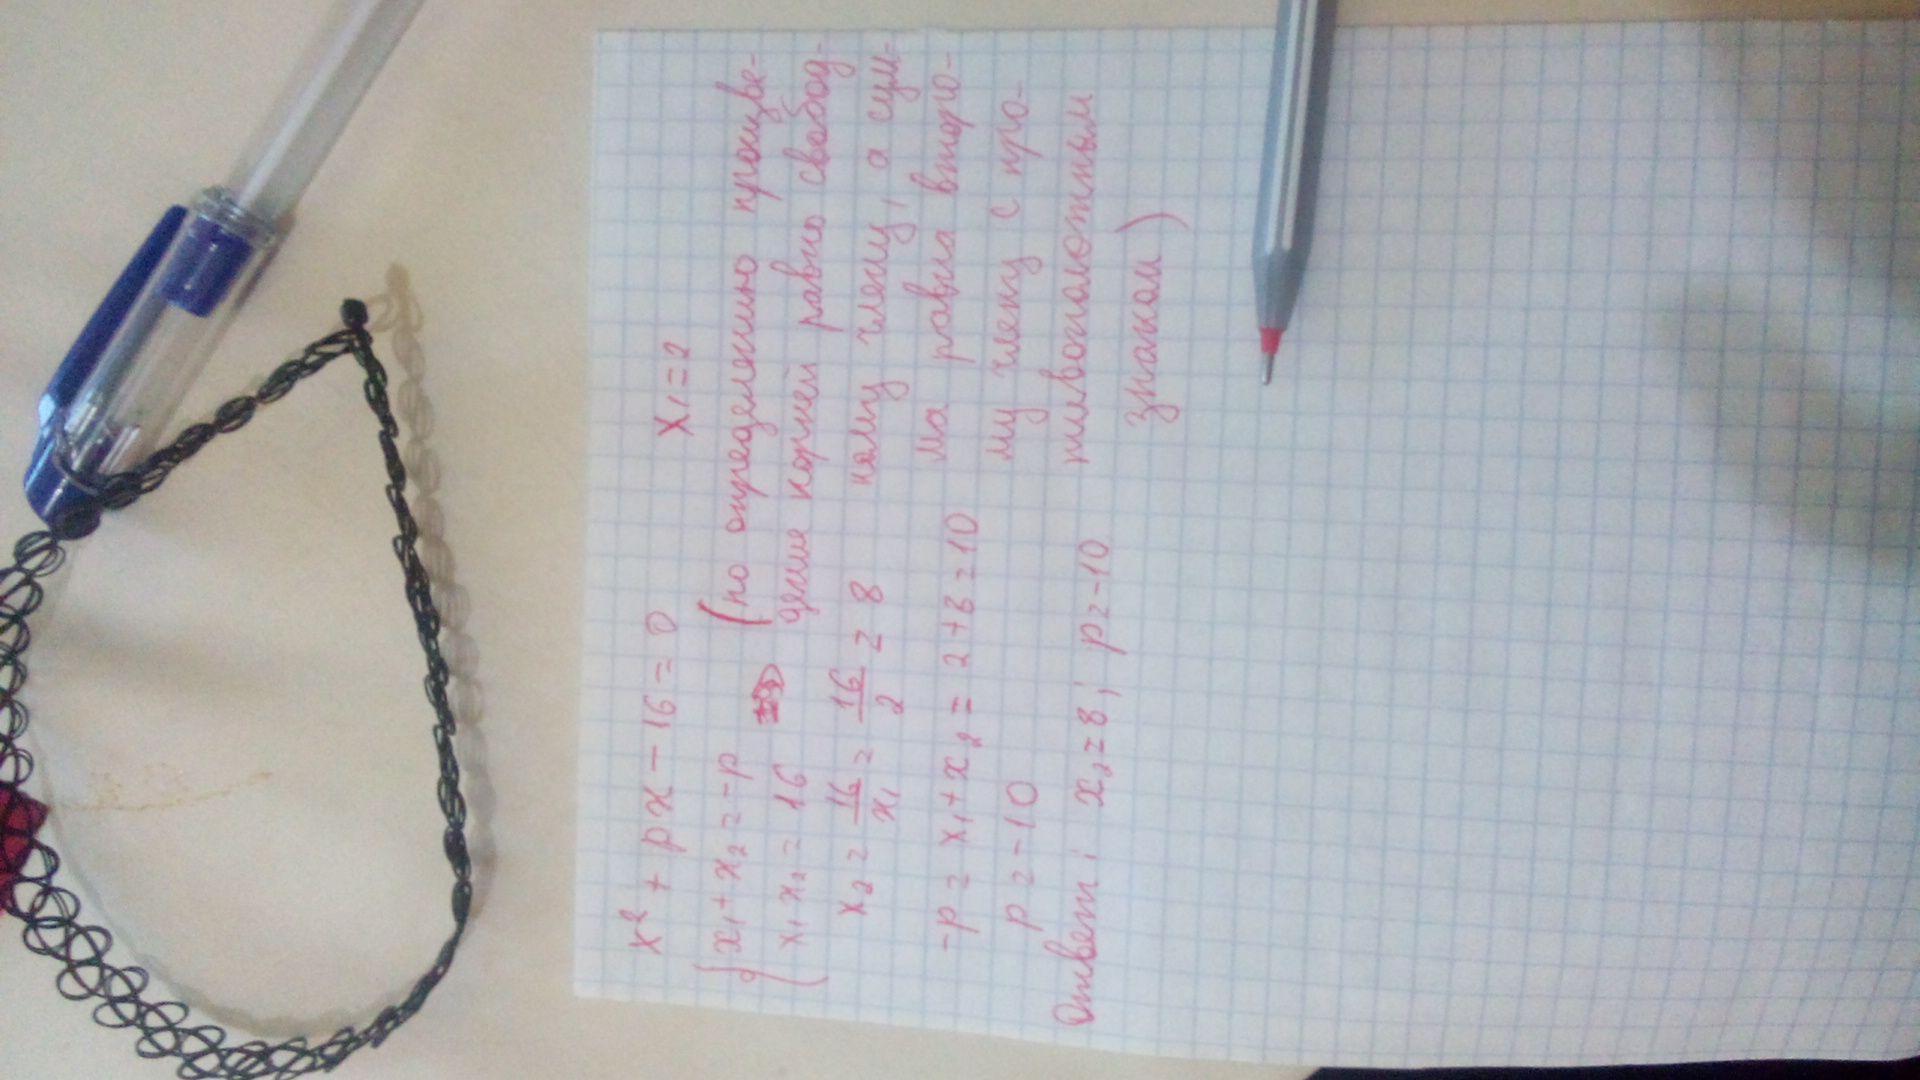 x² + px - 16 = 0
x₁ = 2
x₁ + x₂ = -p
x₁ x₂ = 16
(по определению произве-
дение корней равно свобод-
ному члену, а сум-
ма равна второ-
му члену с про-
тивоположным
знаком)
x₂ = 16/x₁ = 16/2 = 8
-p = x₁ + x₂ = 2 + 8 = 10
p = -10
Ответ: x₂ = 8; p = -10